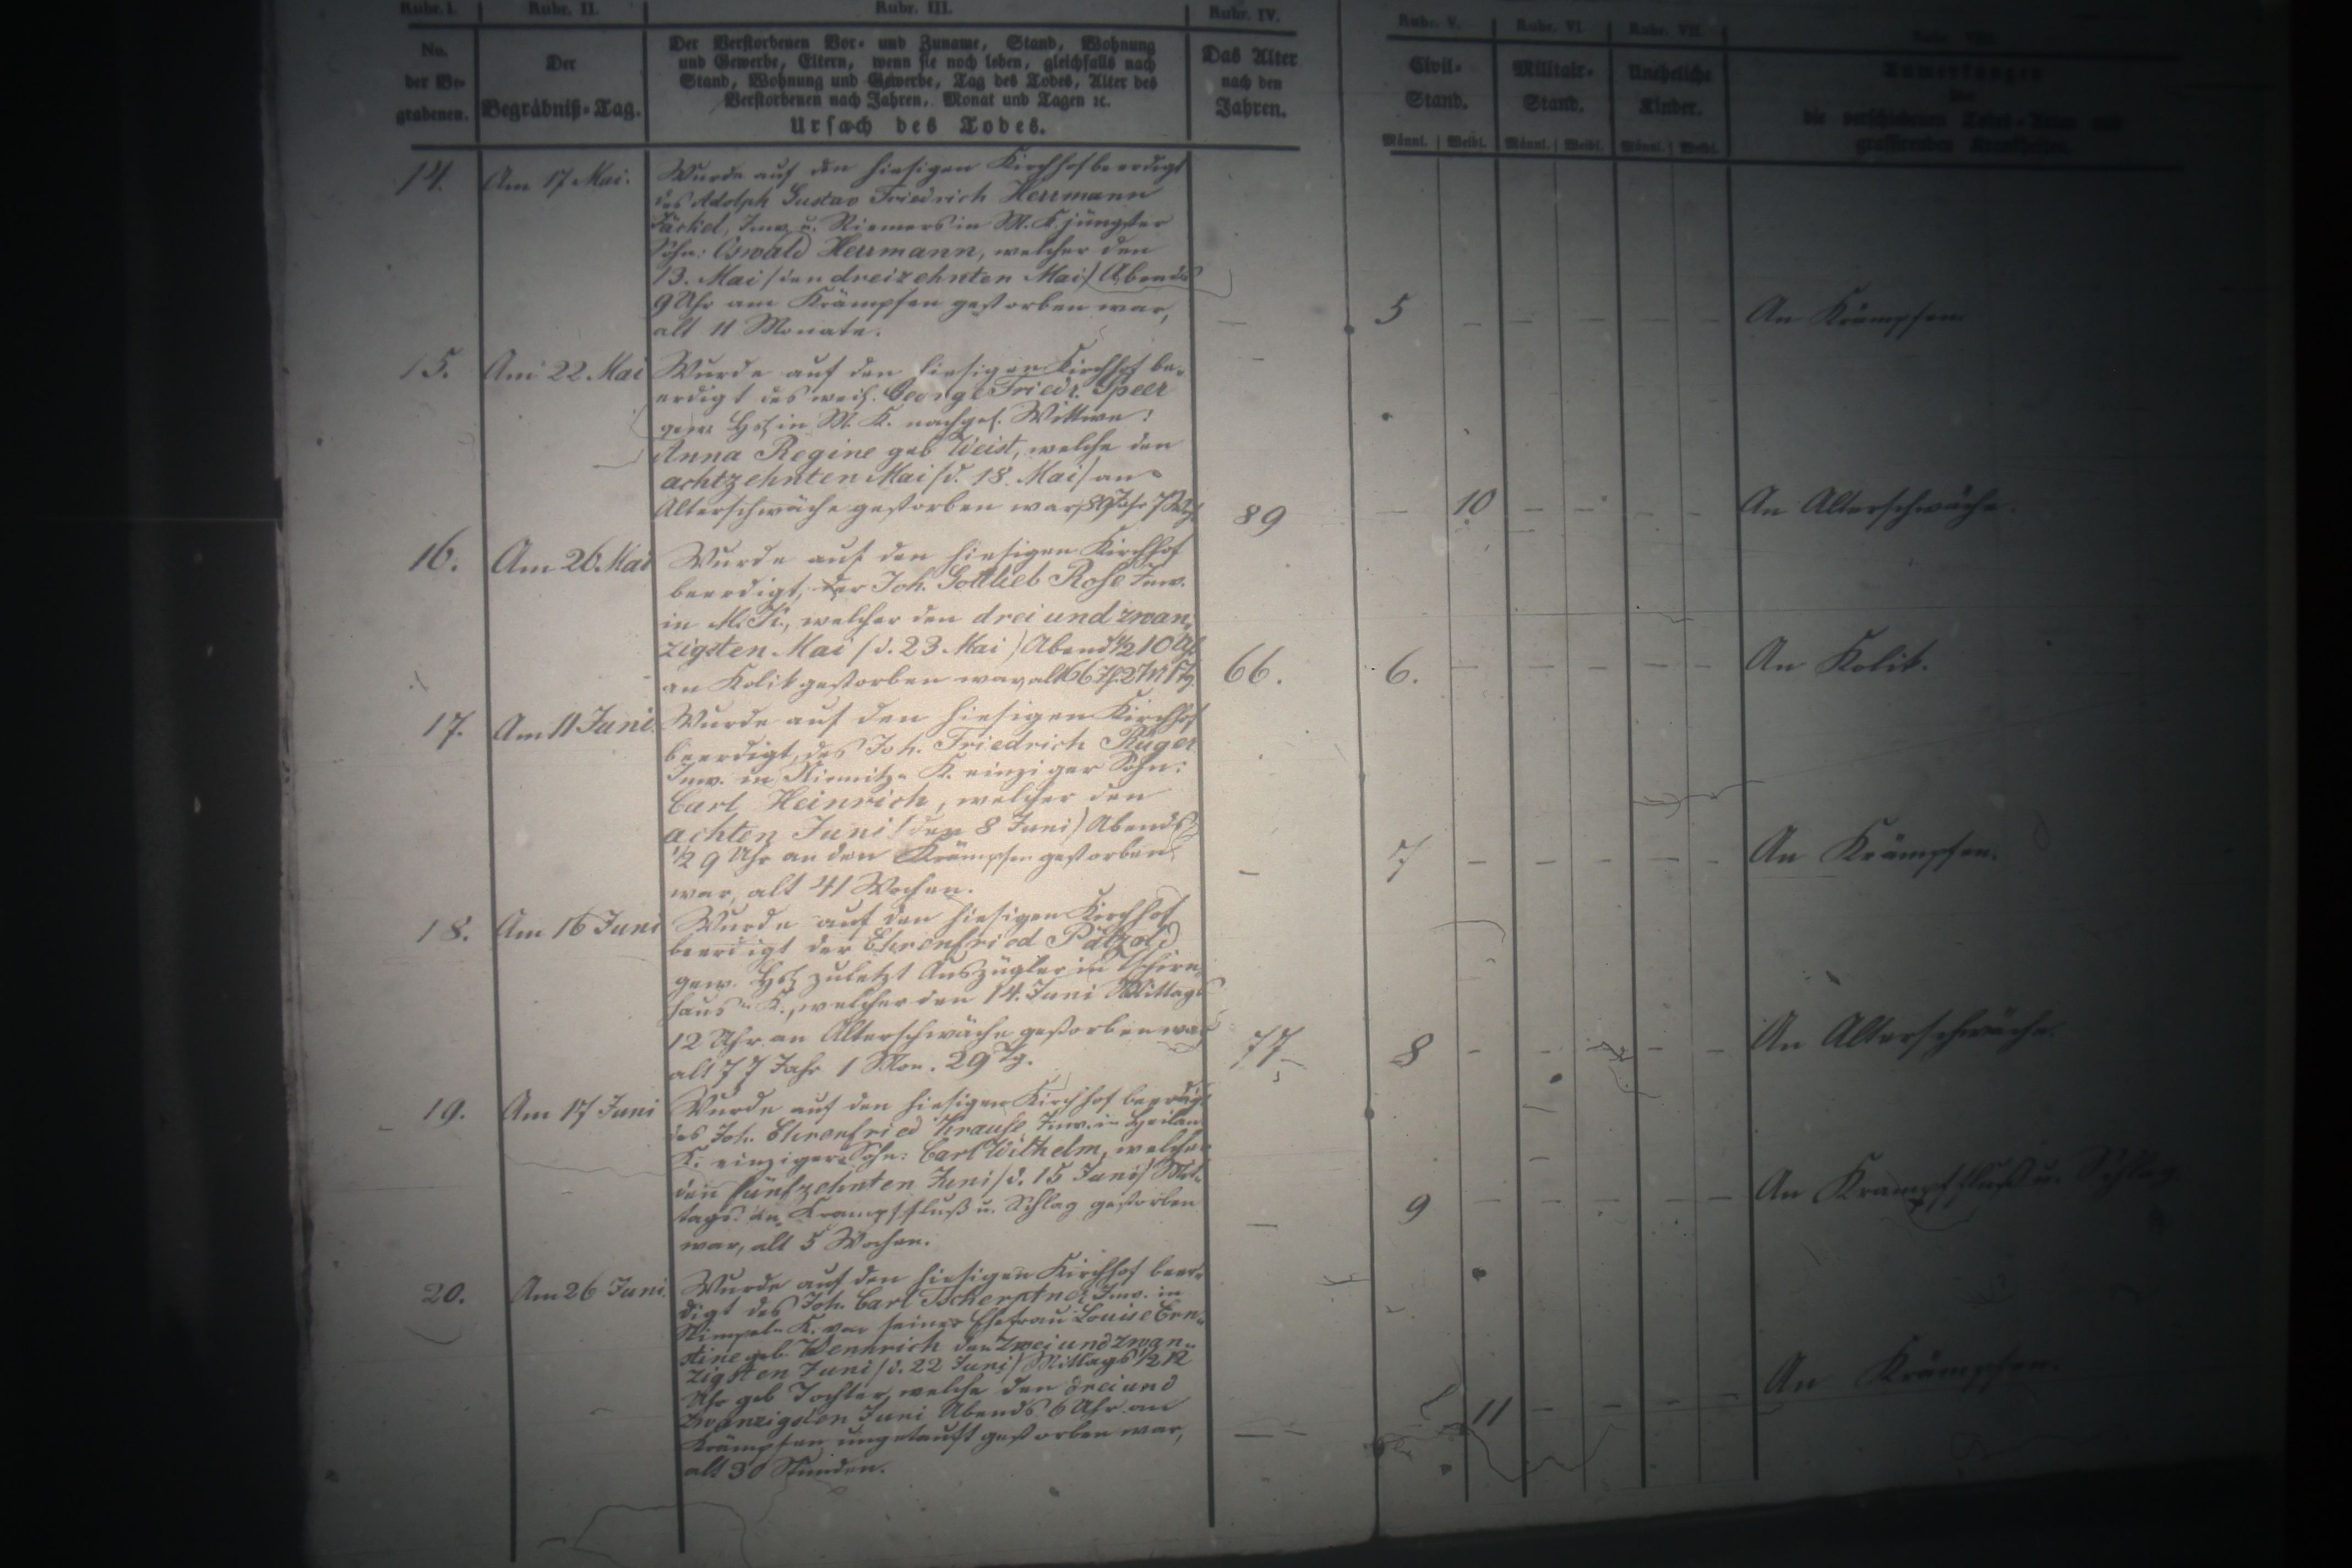 Rubr. I.
Rubr. II.
Rubr. III.
Rubr. IV.
Rubr. V.
Rubr. VI
Rubr. VII.
Rubr. VIII.
No.
der Be-
grabenen.
Der
Begräbniß-Tag.
Der Verstorbenen Vor- und Zuname, Stand, Wohnung
und Gewerbe, Eltern, wenn sie noch leben, gleichfalls nach
Stand, Wohnung und Gewerbe, Tag des Todes, Alter des
Verstorbenen nach Jahren, Monat und Tagen ꝛc.
Ursach des Todes.
Das Alter
nach den
Jahren.
Civil-
Stand.
Männl. Weibl.
Militair-
Stand.
Männl. Weibl.
Uneheliche
Kinder.
Männl. Weibl.
Anmerkungen
die verschiedenen Todes-Arten und
grassirenden Krankheiten.
14.
Am 17 Mai.
Wurde auf den hiesigen Kirchhof beerdigt
des Adolph Gustav Friedrich Herrmann
Jäckel, Inw. u. Riemers in M. K. jüngster
Sohn: Oswald Herrmann, welcher den
13. Mai (den dreizehnten Mai) Abends
9 Uhr am Krämpfen gestorben war,
alt 11 Monate.
—
5
— — — — —
An Krämpfen
15.
Am 22. Mai
Wurde auf den hiesigen Kirchhof be-
erdigt des weil. George Friedr. Speer
gew. Hsl. in M. K. nachgel. Wittwe:
Anna Regine geb Weist, welche den
achtzehnten Mai (d. 18. Mai) an
Alterschwäche gestorben war, 89 Jahr 7
89
—
10
— — — —
An Alterschwäche.
16.
Am 26. Mai
Wurde auf den hiesigen Kirchhof
beerdigt, der Joh. Gottlieb Rose Inw.
in M. K., welcher den drei und zwan-
zigsten Mai (d. 23 Mai) Abend ½ 10 Uh
an Kolik gestorben war, alt 66 J. 2 M.
66.
6.
— — — — —
An Kolik.
17.
Am 11 Juni.
Wurde auf den hiesigen Kirchhof
beerdigt, des Joh. Friedrich Rüger
Inw. in Niemitz- K. einziger Sohn:
Carl Heinrich, welcher den
achten Juni (den 8 Juni) Abends
½ 9 Uhr an den Krämpfen gestorben
war, alt 41 Wochen.
—
7
— — — — —
An Krämpfen.
18.
Am 16 Juni
Wurde auf den hiesigen Kirchhof
beerdigt der Ehrenfried Pätzold
gew. Hsl. zuletzt Auszügler in Tschirn-
haus- K., welcher den 14. Juni Mittags
12 Uhr an Alterschwäche gestorben war
alt 77 Jahr 1 Mon. 29 Tg.
77
8
— — — — —
An Alterschwäche.
19.
Am 17 Juni
Wurde auf den hiesigen Kirchhof beerdigt
des Joh. Ehrenfried Krause Inw. in Heilan-
K. einziger Sohn: Carl Wilhelm, welcher
den fünfzehnten Juni (d. 15 Juni) Mit-
tags an Krampffluß u. Schlag gestorben
war, alt 5 Wochen.
—
9
— — — — —
An Krampffluß u. Schlag.
20.
Am 26 Juni.
Wurde auf den hiesigen Kirchhof beer-
digt des Joh. Carl Inw. in
K. von seiner Ehefrau Louise Ern-
stine geb. Wennrich den zwei und zwan-
zigsten Juni (d. 22 Juni) Mittags ½ 12
Uhr geb Tochter, welche den drei und
zwanzigsten Juni Abends 6 Uhr an
Krämpfen ungetauft gestorben war,
alt 30 Stunden.
—
11
— — — —
An Krämpfen.